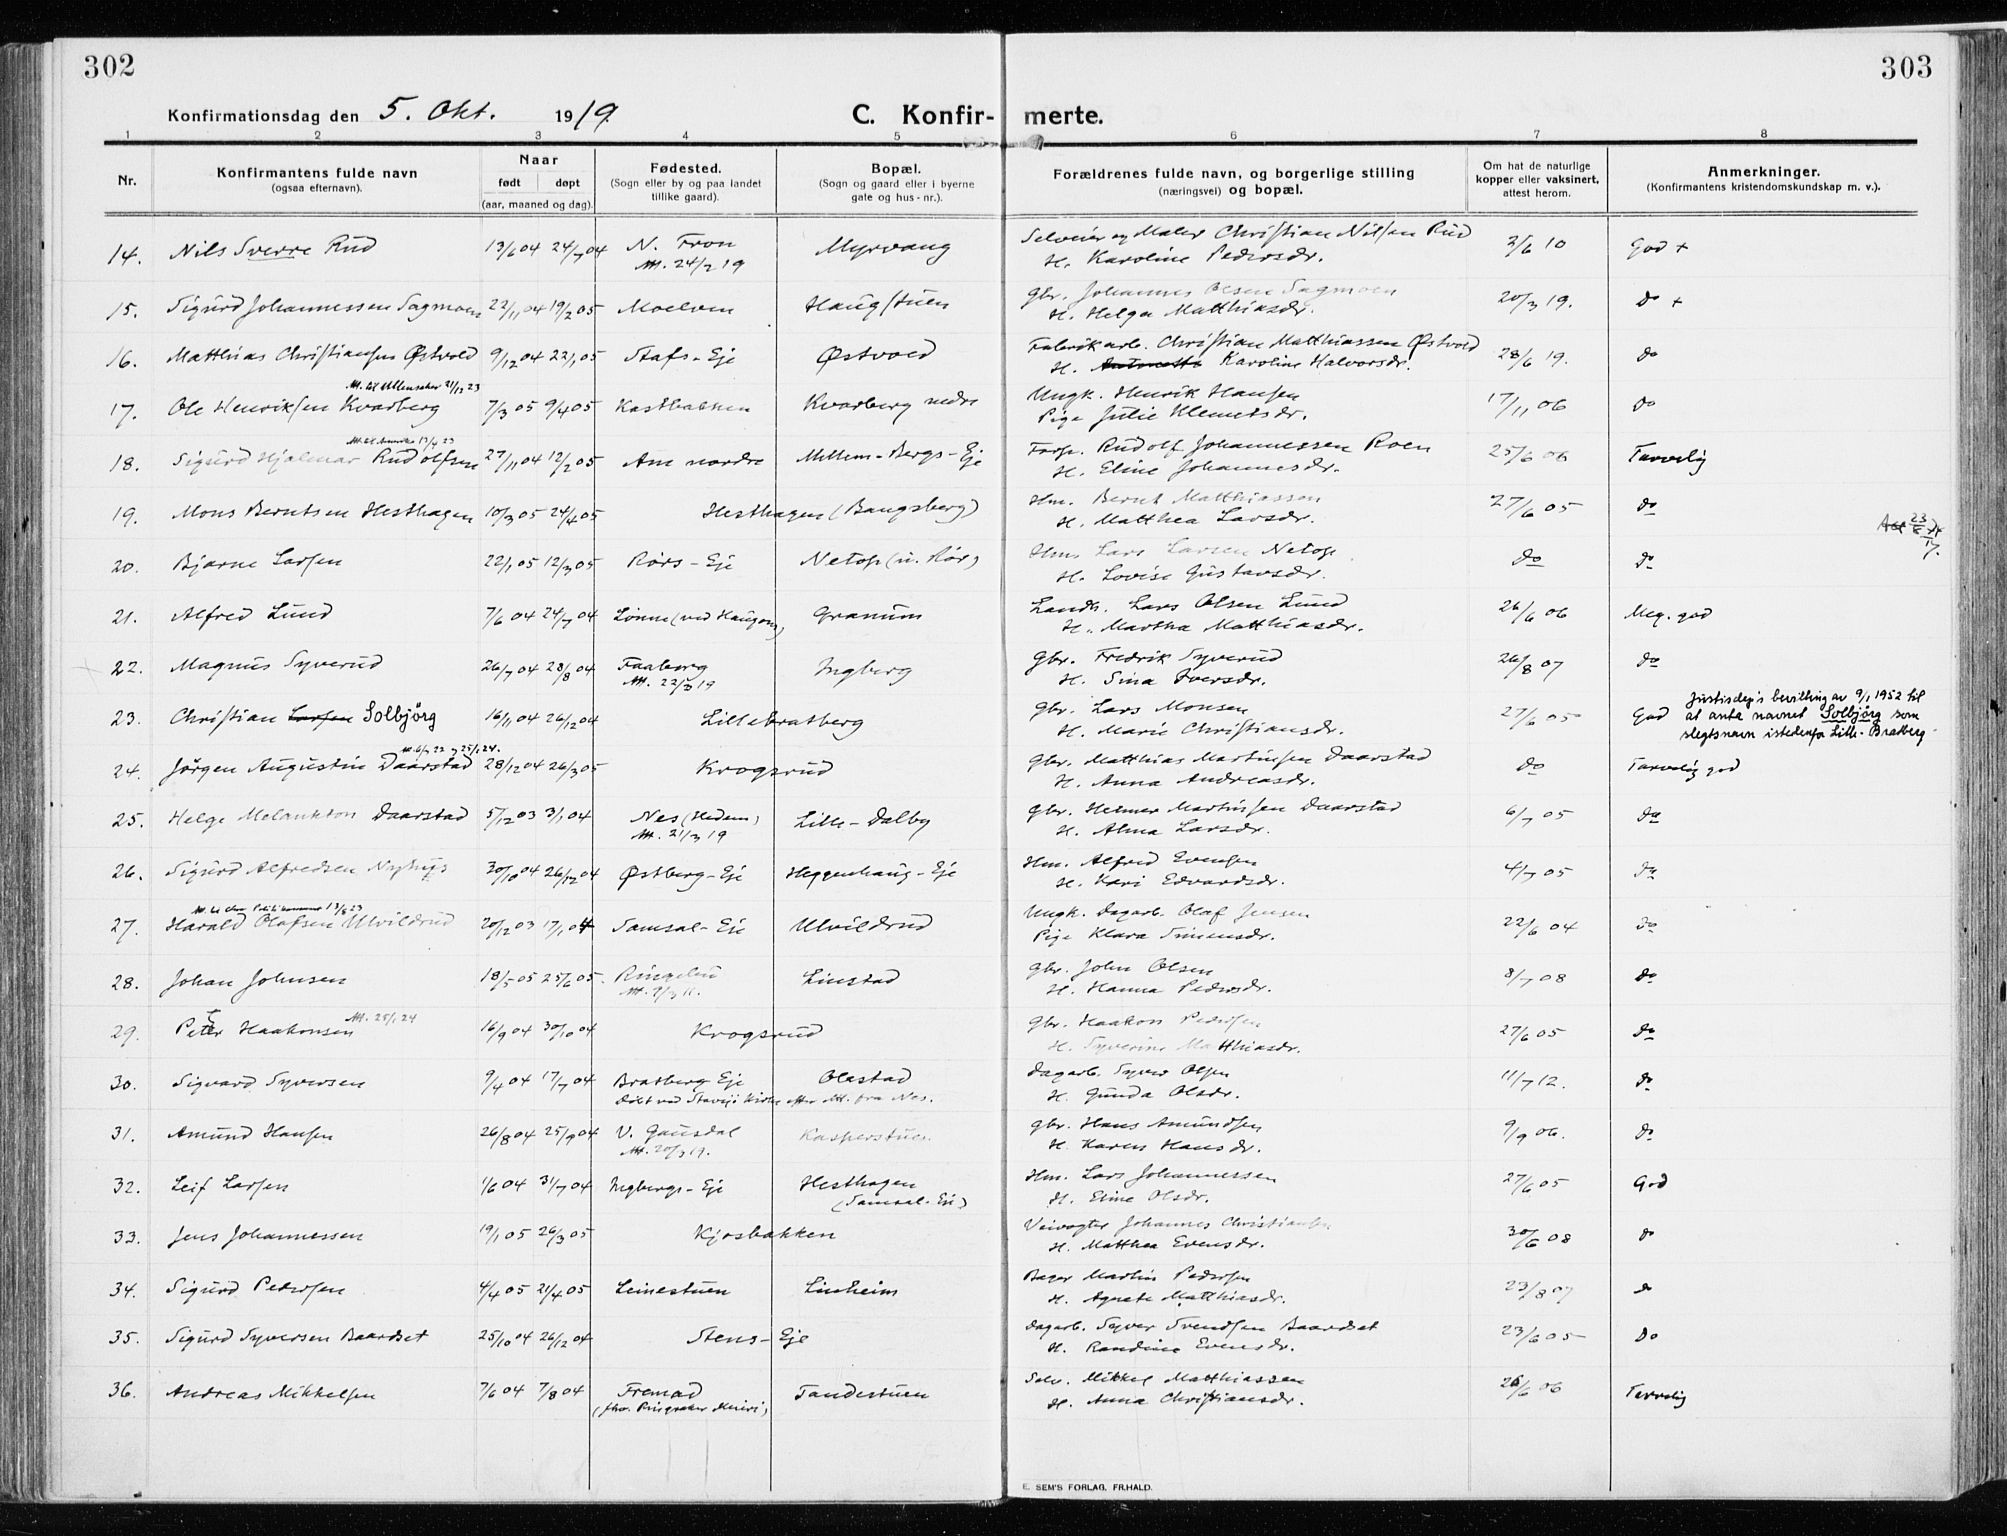 302
303
Konfirmationsdag den 5. Okt. 1919.
C. Konfirmerte.
1 2 3 4 5 6 7 8
Nr. Konfirmantens fulde navn (ogsaa efternavn). Naar født døpt (aar, maaned og dag). Fødested. (Sogn eller by og paa landet tillike gaard). Bopæl. (Sogn og gaard eller i byerne gate og hus-nr.). Forældrenes fulde navn, og borgerlige stilling (næringsvei) og bopæl. Om hat de naturlige kopper eller vaksinert, attest herom. Anmerkninger. (Konfirmantens kristendomskundskap m. v.).
14. Nils Sverre Rud 13/6 04 24/7 04 N. Fron Myrvang Selveier og Maler Christian Nilsen Rud 3/6 10 God +
Att. 24/2 19 H. Karoline Pedersdr.
15. Sigurd Johannessen Sagmoen 22/11 04 19/2 05 Moelven Haugstuen Gbr. Johannes Olsen Sagmoen 20/3 19. do +
H. Helga Matthiasdr.
16. Matthias Christiansen Østvold 9/12 04 22/1 05 Stafs-Eje Østvold Fabrikarb. Christian Matthiassen Østvold 28/6 19. do
H. Karoline Halvorsdr.
Att. til Ullensaker 21/12 23
17. Ole Henriksen Kvarberg 7/3 05 9/4 05 Kastbakken Kvarberg nedre Ungk. Henrik Hansen 17/11 06 do
Pige Julie Klemetsdr.
Att. til Amerika 13/4 23
18. Sigurd Hjalmar Rudolfsen 27/11 04 12/2 05 Am nordre Mellem-Bergs-Eje Forp. Rudolf Johannessen Roen 25/6 06 Tarvelig
H. Eline Johannesdr.
19. Mons Berntsen Hesthagen 10/3 05 24/4 05 Hesthagen (Bangsberg) Hm. Bernt Matthiassen 27/6 05 do
H. Matthea Larsdr.
20. Bjarne Larsen 22/1 05 12/3 05 Rørs-Eje Netop (u. Rør) Hm. Lars Larsen Netop do do
H. Lovise Gustavsdr.
21. Alfred Lund 7/6 04 24/7 04 Lønne (ved Haugom) Granum Landh. Lars Olsen Lund 26/6 06 Meg. god
H. Martha Matthiasdr.
22. Magnus Syverud 26/7 04 28/8 04 Faaberg Ingberg Gbr. Fredrik Syverud 26/8 07 do
Att. 22/3 19 H. Sina Iversdr.
23. Christian Larsen Solbjørg 16/11 04 26/12 04 Lillebratberg Gbr. Lars Monsen 27/6 05 God
H. Marie Christiansdr.
Justisdep's bevilling av 9/1 1952 til
at anta navnet Solbjørg som
slegtsnavn istedenfor Lille-Bratberg
24. Jørgen Augustin Daarstad 28/12 04 26/3 05 Krogsrud Gbr. Matthias Martinsen Daarstad do Tarvelig god
H. Anna Andreasdr.
25. Helge Melankton Daarstad 5/12 03 3/1 04 Nes (Hedem) Lille-Dalby Gbr. Helmer Martinsen Daarstad 6/7 05 do
Att. 21/3 19 H. Alma Larsdr.
26. Sigurd Alfredsen Nyhus 30/10 04 26/12 04 Østberg-Eje Heggenhaug-Eje Hm. Alfred Evensen 4/7 05 do
H. Kari Edvardsdr.
27. Harald Olafsen Ulvildrud 20/12 03 17/1 04 Samsal-Eje Ulvildrud Ungk. Dagarb. Olaf Jensen 22/6 04 do
Pige Klara Simensdr.
28. Johan Johnsen 18/5 05 25/6 05 Ringebu Linstad Gbr. John Olsen 8/7 08 do
H. Hanna Pedersdr.
Att. 25/1 24
29. Peter Haakonsen 16/9 04 30/10 04 Krogsrud Gbr. Haakon Pedersen 27/6 05 do
H. Syverine Matthiasdr.
30. Sigvard Syversen 9/4 04 17/7 04 Bratberg Eje Olastad Dagarb. Syver Olsen 11/7 12. do
Døbt ved Stavsjø Kirke efter Att. fra Nes. H. Gunda Olsdr.
31. Amund Hansen 26/8 04 25/9 04 V. Gausdal Kasperstuen Gbr. Hans Amundsen 9/9 06. do
Att. 20/3 19. H. Karen Hansdr.
32. Leif Larsen 1/6 04 31/7 04 Ingbergs-Eje Hesthagen Hm. Lars Johannessen 27/6 05 God
(Samsal-Eje) H. Eline Olsdr.
33. Jens Johannessen 19/1 05 26/3 05 Kjosbakken Veivogter Johannes Christiansen 30/6 08 do
H. Matthea Evensdr.
34. Sigurd Pedersen 4/4 05 21/4 05 Leinestuen Linheim Bager Martin Pedersen 23/8 07 do
H. Agnete Matthiasdr.
35. Sigurd Syversen Baardset 25/10 04 26/12 04 Stens-Eje Dagarb. Syver Svendsen Baardset 23/6 05 Do
H. Randine Evensdr.
36. Andreas Mikkelsen 7/6 04 7/8 04 Fremad Tandestuen Selv. Mikkel Matthiassen 26/6 06 Tarvelig
H. Anna Christiansdr.
E. SEM'S FORLAG, FR.HALD.